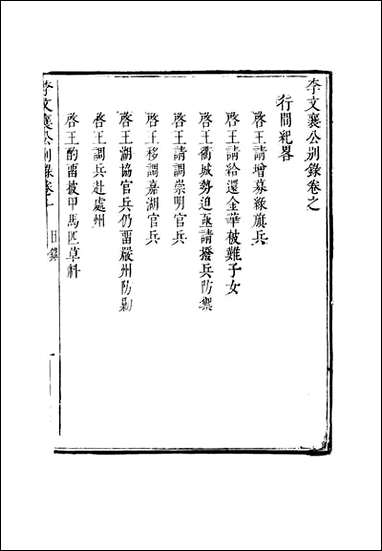 李文襄公別錄卷之
行間紀畧
啓王請增募綠旗兵
啓王請給還金華被難子女
啓王衢城勢迫亟請撥兵防禦
啓王請調崇明官兵
啓王移調嘉湖官兵
啓王湖協官兵仍畱嚴州防剿
啓王調兵赴處州
啓王酌畱披甲馬匹草料
李文襄公別錄卷一 目錄 一